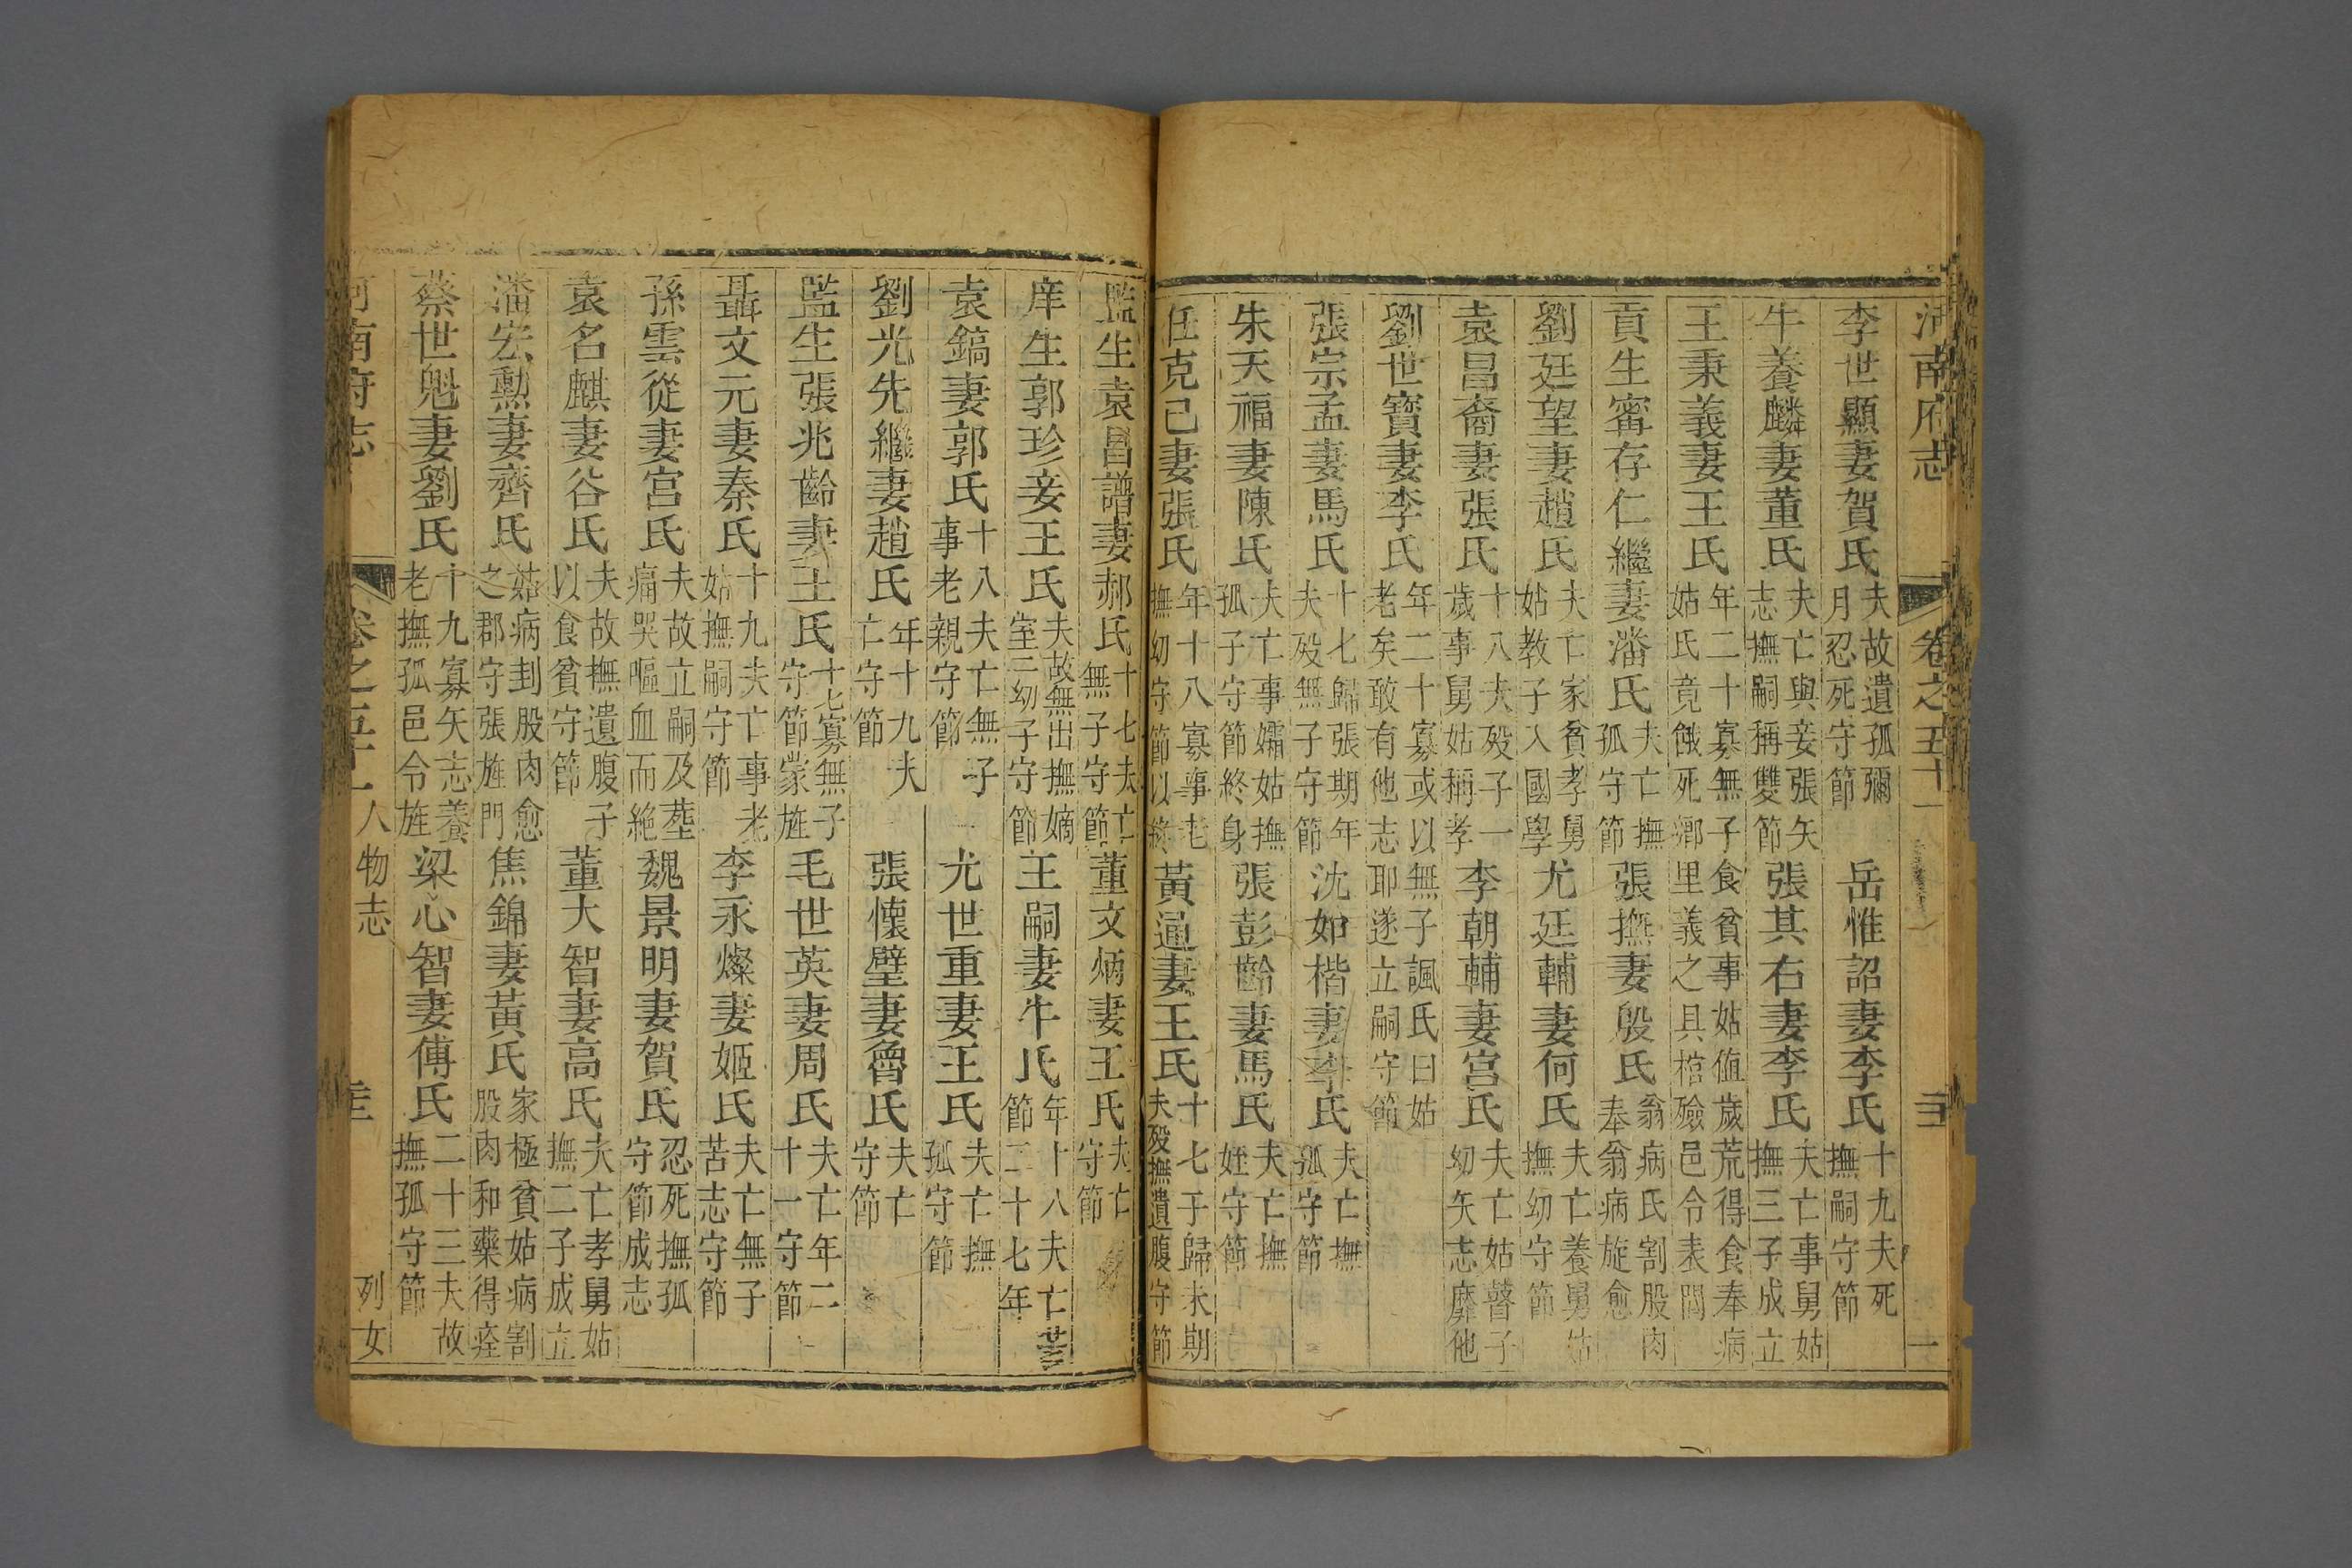 河南府志 卷之五十一
李世顯妻賀氏 夫故遺孤彌月忍死守節 岳惟詔妻李氏 十九夫死撫嗣守節
牛養麟妻董氏 夫亡與妾張矢志撫嗣稱雙節 張其右妻李氏 夫亡事舅姑撫三子成立
王秉義妻王氏 年二十寡無子食貧事姑值歲荒得食奉病姑氏竟餓死鄉里義之具棺殮邑令表閭
貢生甯存仁繼妻潘氏 夫亡撫孤守節 張撫妻殷氏 翁病氏割股肉奉翁病旋愈
劉廷望妻趙氏 夫亡家貧孝舅姑教子入國學 尤廷輔妻何氏 夫亡養舅姑撫幼守節
袁昌裔妻張氏 十八夫歿子一歲事舅姑稱孝 李朝輔妻宮氏 夫亡姑瞽子幼矢志靡他
劉世寶妻李氏 年二十寡或以無子諷氏曰姑老矣敢有他志耶遂立嗣守節
張宗孟妻馬氏 十七歸張期年夫歿無子守節 沈如楷妻李氏 夫亡撫孤守節
朱天福妻陳氏 夫亡事孀姑撫孤子守節終身 張彭齡妻馬氏 夫亡撫姪守節
任克已妻張氏 年十八寡事老撫幼守節以終 黃通妻王氏 十七于歸未期夫歿撫遺腹守節
監生袁昌譜妻郝氏 十七夫亡無子守節 董文炳妻王氏 夫亡守節
庠生郭珍妾王氏 夫故無出撫嫡室二幼子守節 王嗣妻牛氏 年十八夫亡苦節二十七年
袁鎬妻郭氏 十八夫亡無子事老親守節 尤世重妻王氏 夫亡撫孤守節
劉光先繼妻趙氏 年十九夫亡守節 張懷璧妻魯氏 夫亡守節
監生張兆齡妻王氏 十七寡無子守節蒙旌 毛世英妻周氏 夫亡年二十一守節
聶文元妻秦氏 十九夫亡事老姑撫嗣守節 李永燦妻姬氏 夫亡無子苦志守節
孫雲從妻宮氏 夫故立嗣及塟痛哭嘔血而絕 魏景明妻賀氏 忍死撫孤守節成志
袁名麒妻谷氏 夫故撫遺腹子以食貧守節 董大智妻高氏 夫亡孝舅姑撫二子成立
潘宏勲妻齊氏 姑病刲股肉愈之郡守張旌門 焦錦妻黃氏 家極貧姑病割股肉和藥得痊
蔡世魁妻劉氏 十九寡矢志養老撫孤邑令旌 梁心智妻傅氏 二十三夫故撫孤守節
河南府志 卷之五十一 人物志 列女